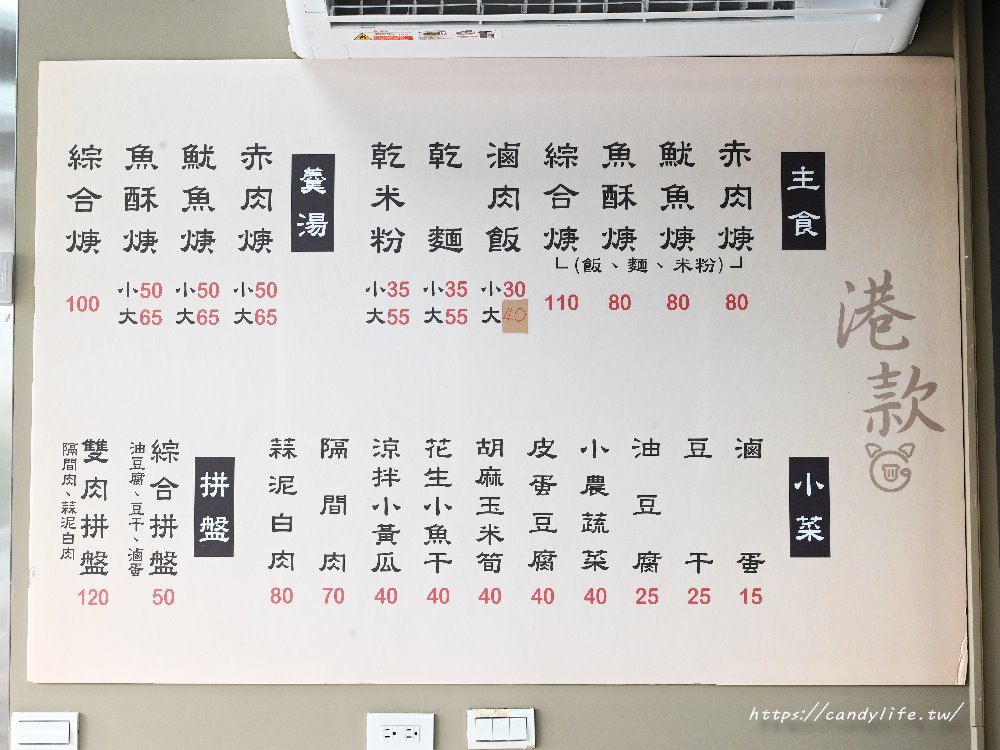 主食
赤肉焿 80
魷魚焿 80
魚酥焿 80
綜合焿 110
(飯、麵、米粉)
滷肉飯 小30 大40
乾麵 小35 大55
乾米粉 小35 大55
羹湯
赤肉焿 小50 大65
魷魚焿 小50 大65
魚酥焿 小50 大65
綜合焿 100
港款
小菜
滷蛋 15
豆干 25
油豆腐 25
小農蔬菜 40
皮蛋豆腐 40
胡麻玉米筍 40
花生小魚干 40
涼拌小黃瓜 40
隔間肉 70
蒜泥白肉 80
拼盤
綜合拼盤 50
油豆腐、豆干、滷蛋
雙肉拼盤 120
隔間肉、蒜泥白肉
https://candylife.tw/